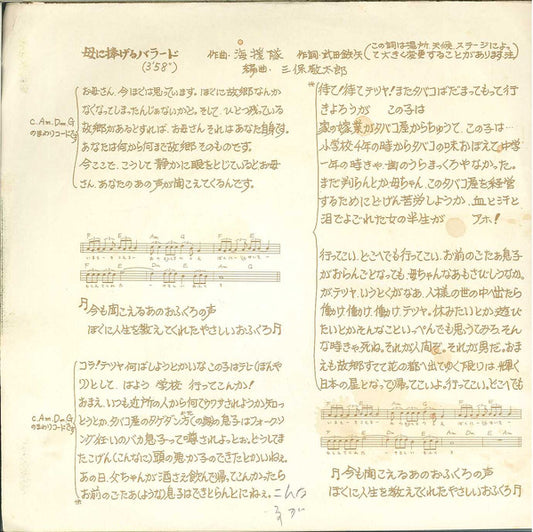 母に捧げるバラード
(3'58")
作曲・海援隊 作詞・武田鉄矢
(この詞は場所 天候 ステージによって大きく変更することがあります。)
編曲・三保敬太郎
C.Am.Dm.G
のまわりコードです
お母さん、今ぼくは思っています。ぼくに故郷なんか
なくなってしまったんじゃないかと。そして、ひとつ残っている
故郷があるとすれば、お母さん、それはあなた自身です。
あなたは何から何まで故郷 そのものです。
今ここで、こうして 静かに眼をとじているとお母
さん、あなたのあの声が聞こえてくるんです。
F E Am G
F E Dm E Am
今も聞こえるあのおふくろの声
ぼくに人生を教えてくれたやさしいおふくろ
C.Am.Dm.G
のまわりコードです
コラ!テツヤ 何ばしようとかいな この子はテレ(ぼんや
り)として、 はよう 学校 行ってこんか!
おまえ、いつも近所の人から何てウワサされようか知っ
とうとか、タバコ屋のタケダン方(の家)の息子はフォークソ
ング狂いのバカ息子って噂されよっとお、どうしてま
たこげん(こんなに)頭の悪か子のできたとかいねぇ。
あの日、父ちゃんが酒さえ飲んで帰ってこんかったら
お前のごたあ(ような)息子はできとらんとにねぇ。
待て!待てテツヤ!またタバコばだまってもって行
きようろうが この子は
家の嫁業がタバコ屋からちゅうて、この子は…
小学校4年の時からタバコの味おぼえて、中学
一年の時きゃ、歯のうらまっくろやなかった。
まだ判らんとか母ちゃん、このタバコ屋を経営
するためにどげん苦労しようか、血と汗と
泪でよごれた女の半生が アホ!
行ってこい、どこへでも行ってこい。お前のごたあ息子
がおらんごとなっても、母ちゃんなあもさびしうなか。
がテツヤ、いうとくがなあ、人様の世の中出たら
働け 働け 働け、テツヤ。休みたいとか遊び
たいとかそんなこと、いっぺんでも思うてみろ、そん
な時きゃ死ね。それが人間ぞ。それが男だ。おま
えも故郷すてて花の都へ出てゆく限りは、輝く
日本の星となって帰ってこいよ。行ってこい、どこへでも
F E Am G
F E Dm E Am
今も聞こえるあのおふくろの声
ぼくに人生を教えてくれたやさしいおふくろ